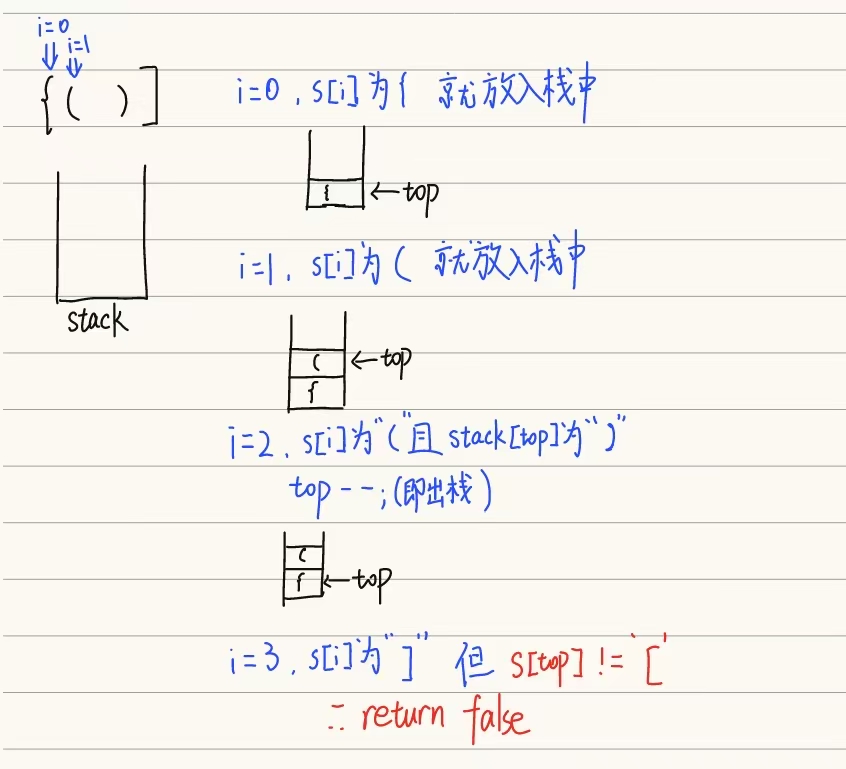 i=0
i=1
{( )]
i=0，s[i]为{ 就放入栈中
{ ←top
stack
i=1，s[i]为( 就放入栈中
( ←top
{
i=2，s[i]为"("且stack[top]为")"
top--;(即出栈)
(
{ ←top
i=3，s[i]为"]" 但 s[top] != '['
∴ return false